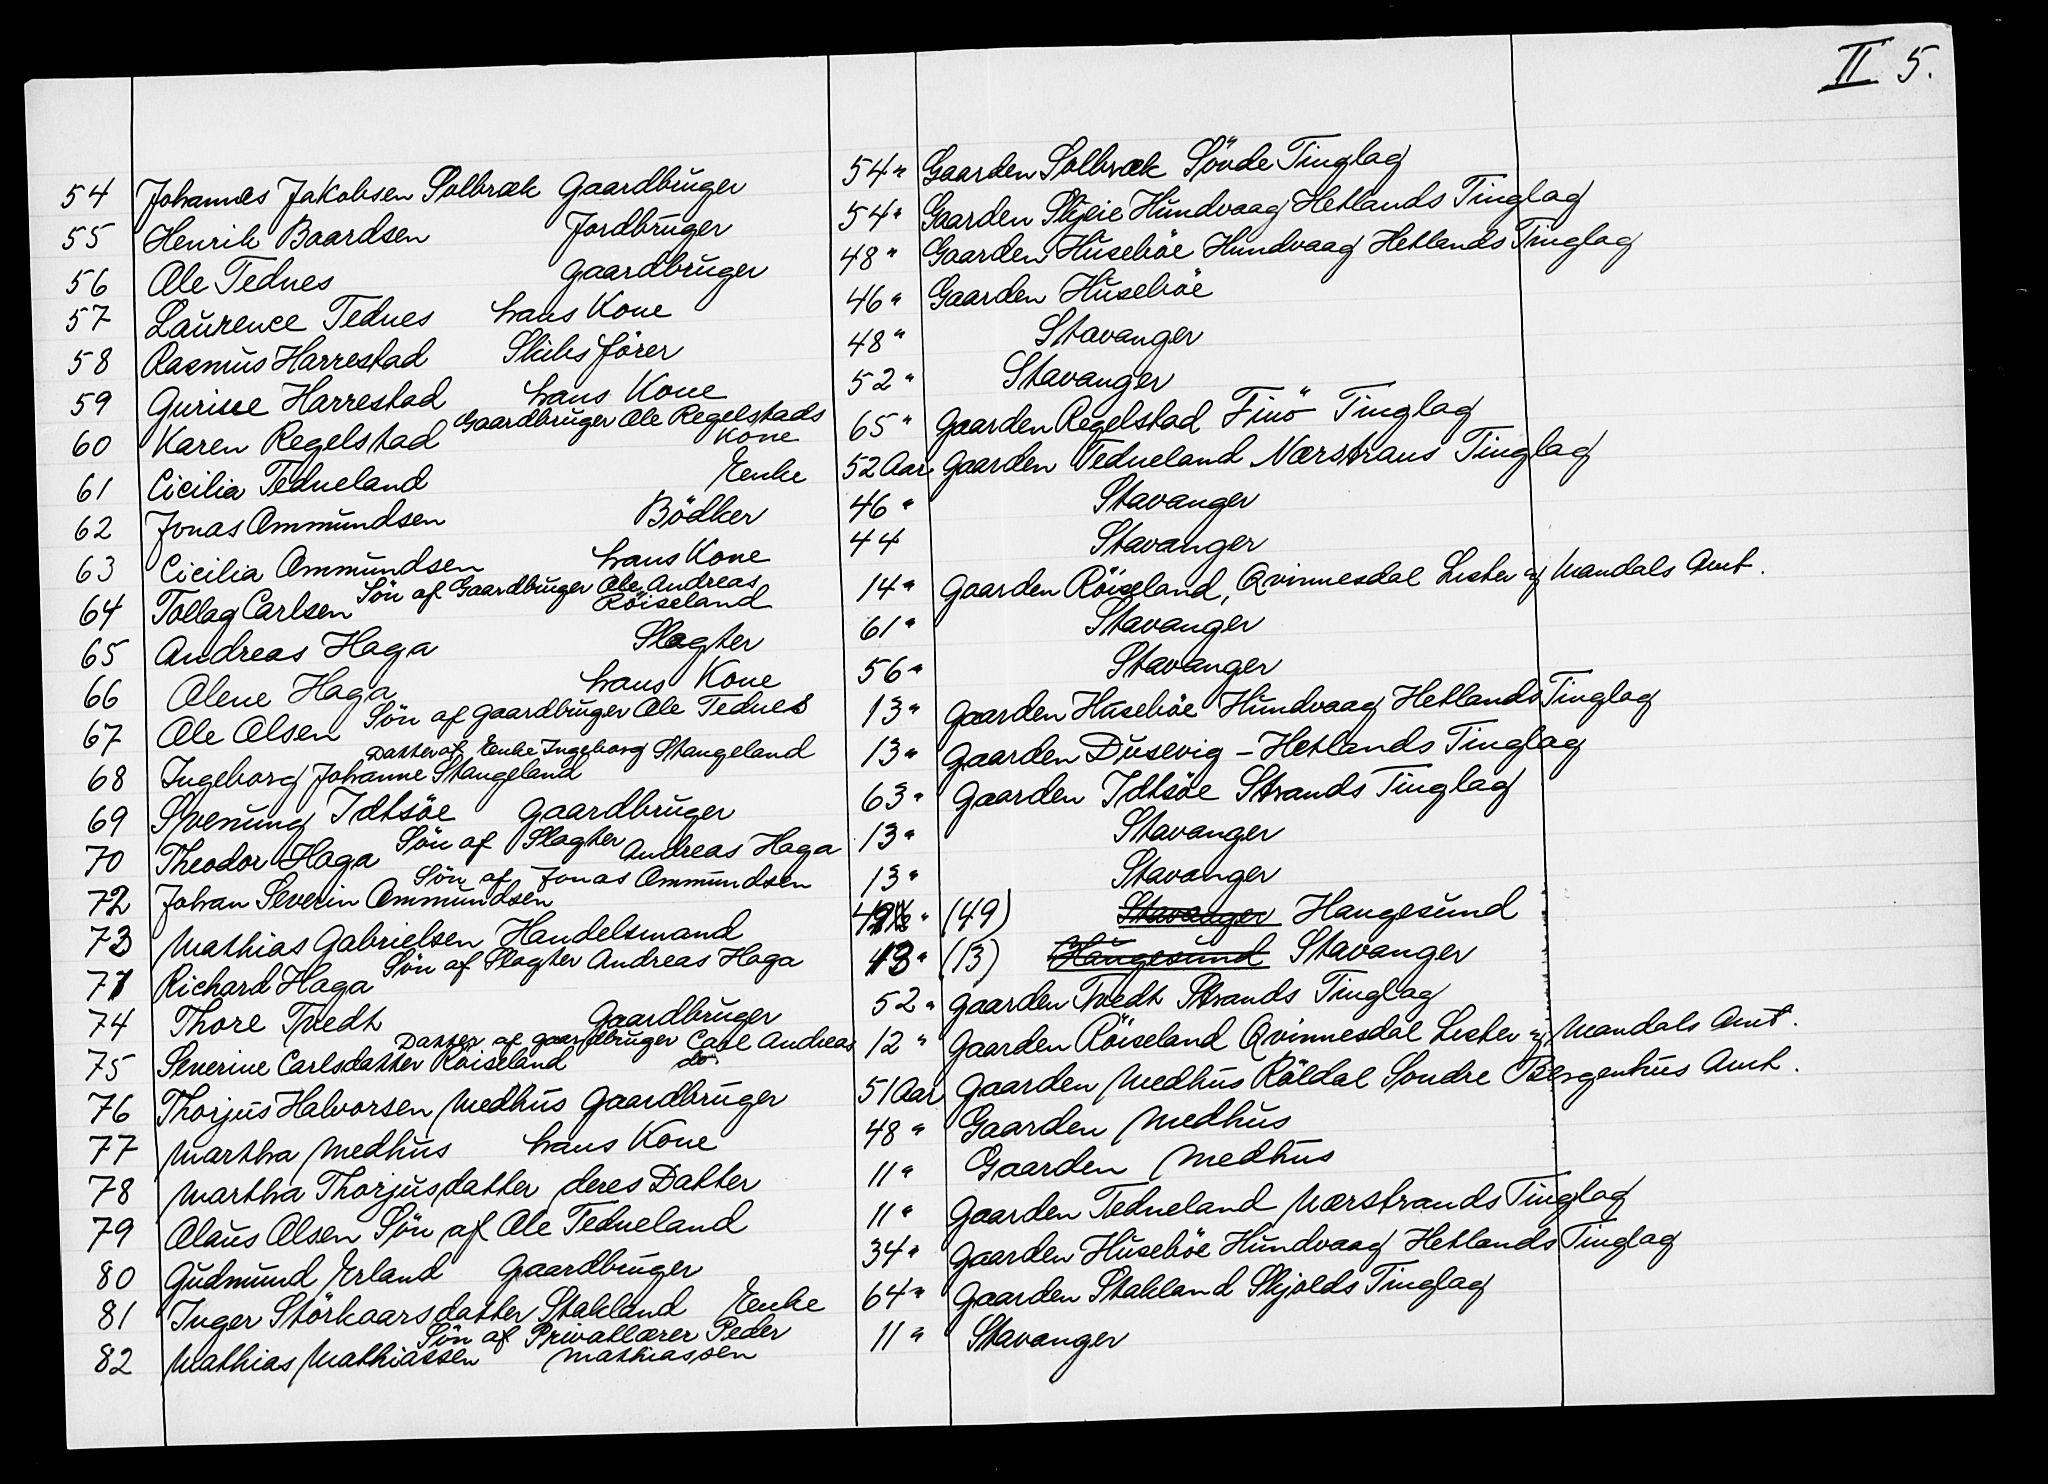 II 5.
54 Johannes Jakobsen Solbræk Gaardbruger 54 " Gaarden Solbræk Sövde Tinglag
55 Henrik Baardsen Jordbruger 54 " Gaarden Skjeie Hundvaag Hetlands Tinglag
56 Ole Tednes Gaardbruger 48 " Gaarden Huseböe Hundvaag Hetlands Tinglag
57 Laurence Tednes hans Kone 46 " Gaarden Huseböe
58 Rasmus Harrestad Skibsförer 48 " Stavanger
59 Gurine Harrestad hans Kone 52 " Stavanger
60 Karen Regelstad Gaardbruger Ole Regelstads Kone 65 " Gaarden Regelstad Finö Tinglag
61 Cicilia Tedneland Enke 52 Aar Gaarden Tedneland Nærstrans Tinglag
62 Jonas Ommundsen Bödker 46 " Stavanger
63 Cicilia Ommundsen hans Kone 44 Stavanger
64 Tollag Carlsen Sön af Gaardbruger Ole Andreas Röiseland 14 " Gaarden Röiseland, Qvinnesdal Lister og Mandals Amt.
65 Andreas Haga Slagter 61 " Stavanger
66 Olene Haga hans Kone 56 " Stavanger
67 Ole Olsen Sön af Gaardbruger Ole Tednes 13 " Gaarden Huseböe Hundvaag Hetlands Tinglag
68 Ingeborg Johanne Stangeland Datter af Enke Ingeborg Stangeland 13 " Gaarden Dusevig - Hetlands Tinglag
69 Svenung Idtsöe Gaardbruger 63 " Gaarden Idtsöe Strands Tinglag
70 Theodor Haga Sön af Slagter Andreas Haga 13 " Stavanger
72 Johan Severin Ommundsen Sön af Jonas Ommundsen 13 " Stavanger
73 Mathias Gabrielsen Handelsmand " (49) Stavanger Haugesund
71 Richard Haga Sön af Slagter Andreas Haga 13 " (13) Haugesund Stavanger
74 Thore Tvedt Gaardbruger 52 " Gaarden Tvedt Strands Tinglag
75 Severine Carlsdatter Röiseland Datter af Gaardbruger Carl Andreas do. 12 " Gaarden Röiseland Qvinnesdal Lister og Mandals Amt.
76 Thorjus Halvorsen Medhus Gaardbruger 51 Aar Gaarden Medhus Röldal Sondre Bergenhus Amt.
77 Martha Medhus hans Kone 48 " Gaarden Medhus
78 Martha Thorjusdatter deres Datter 11 " Gaarden Medhus
79 Olaus Olsen Sön af Ole Tedneland 11 " Gaarden Tedneland Nærstrands Tinglag
80 Gudmund Erland Gaardbruger 34 " Gaarden Huseböe Hundvaag Hetlands Tinglag
81 Inger Störkaarsdatter Stakland Enke 64 " Gaarden Stakland Skjolds Tinglag
82 Mathias Mathiassen Sön af Privatlærer Peder Mathiassen 11 " Stavanger